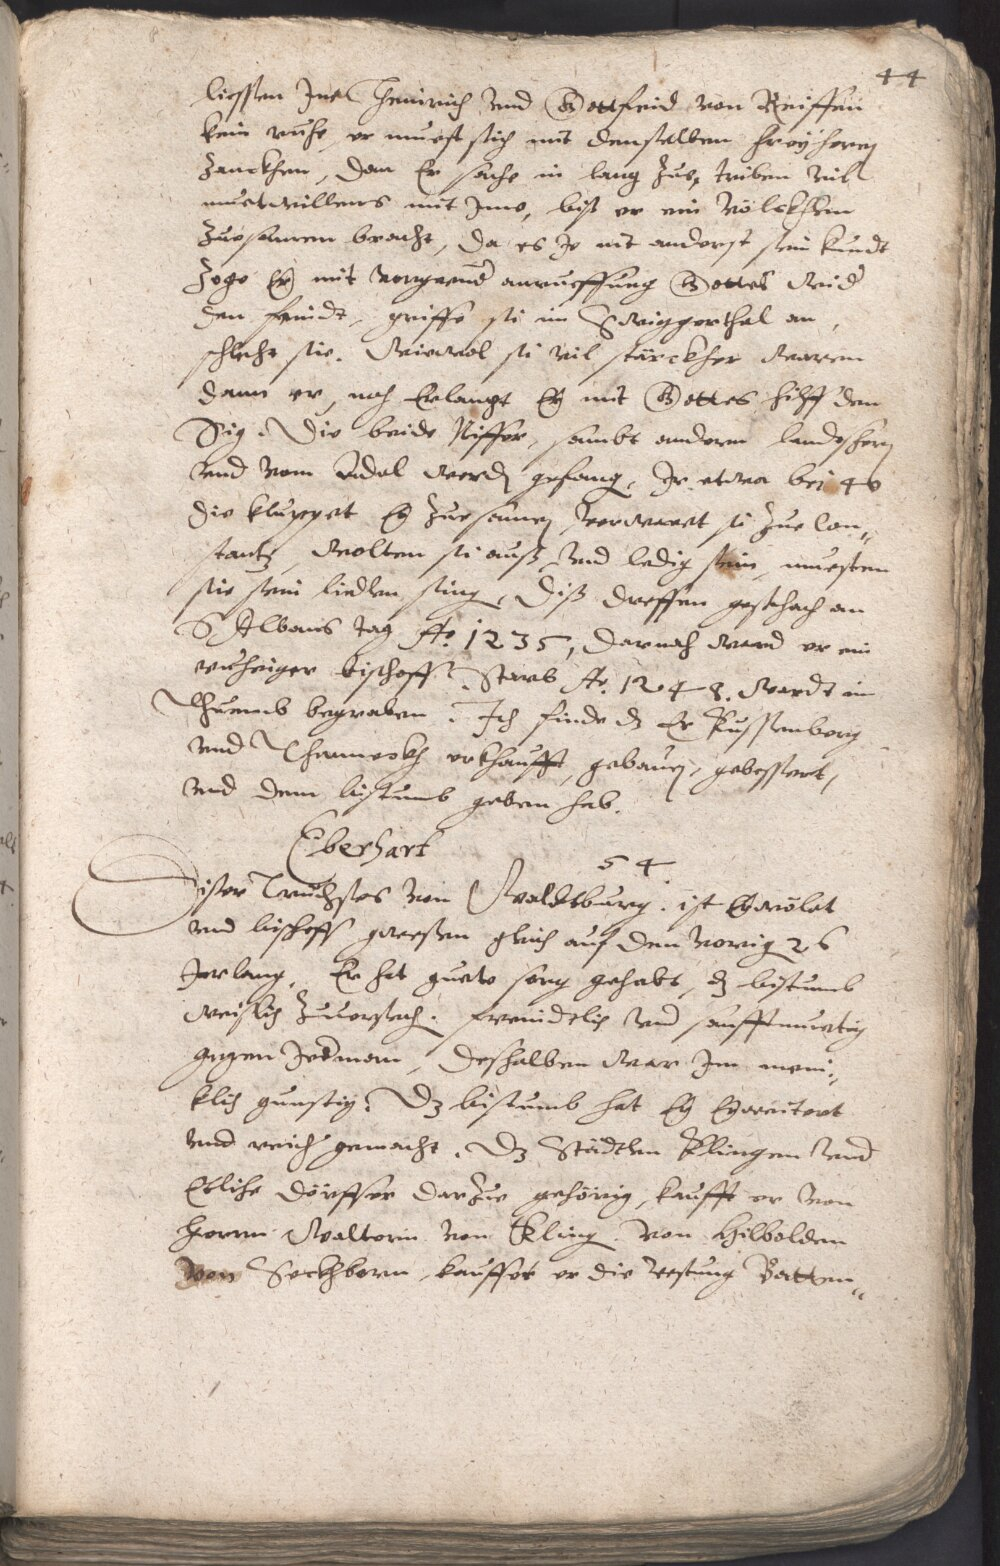 44
liessen Ine Heinrich und Gottfrid von Neiffen
kein ruhe, er muest sich mit denselben freyherren
zanckhen, dan Er sahe in lang zue, triben vil
muetwillens mit Imo, biß er ein völckhlin
zuesamen bracht, da es Je nit anderst sein kundt
Zoge Er mit vorgeend anrueffung Gottes wid
den feindt, griffe si im Schwiggerthal an,
schluhe sie. Wiewol si vil stärckher waren
dann er, noch Erlangt Er mit Gottes hilff den
Sig. Die beide Niffer, sambt anderen landsheren
und vom Adel werden gefang. Ir etwa bei 40
die kluppet Er zuesamen, verwaret si zue Con„
stantz, Wolten si auß und ledig sein, muesten
sie sein liedlen sing. Diß dreffen geschach an
S Albans tag Ao. 1235, Darnach ward er ein
ruhiger bischoff. Starb Ao. 1248. Wardt im
Thuemb begraben. Ich finde dz Er Kussenberg
und Thanneckh erkhaufft, gebauen, gebessert,
und dem bistumb geben hab.
Eberhart
54.
Diser Truchses von Waldtburg. ist Erwölet
und bischoff gwesen gleich auf den vorig 26
Jar lang. Er hat guete sorg gehabt, dz bistumb
weislich zuuersech. freindtlich und sanfftmuetig
gegen Jederman, deshalben war Im meni„
klich gunstig. Dz bistumb hat Er Erweitert
und reich gemacht. Dz Städtlen Klingen und
Etliche dörffer darzue gehörig, kaufft er von
Herrn Waltern von Kling. Von Hilbolden
von Steckhborn, kauffet er die vestung Batten„